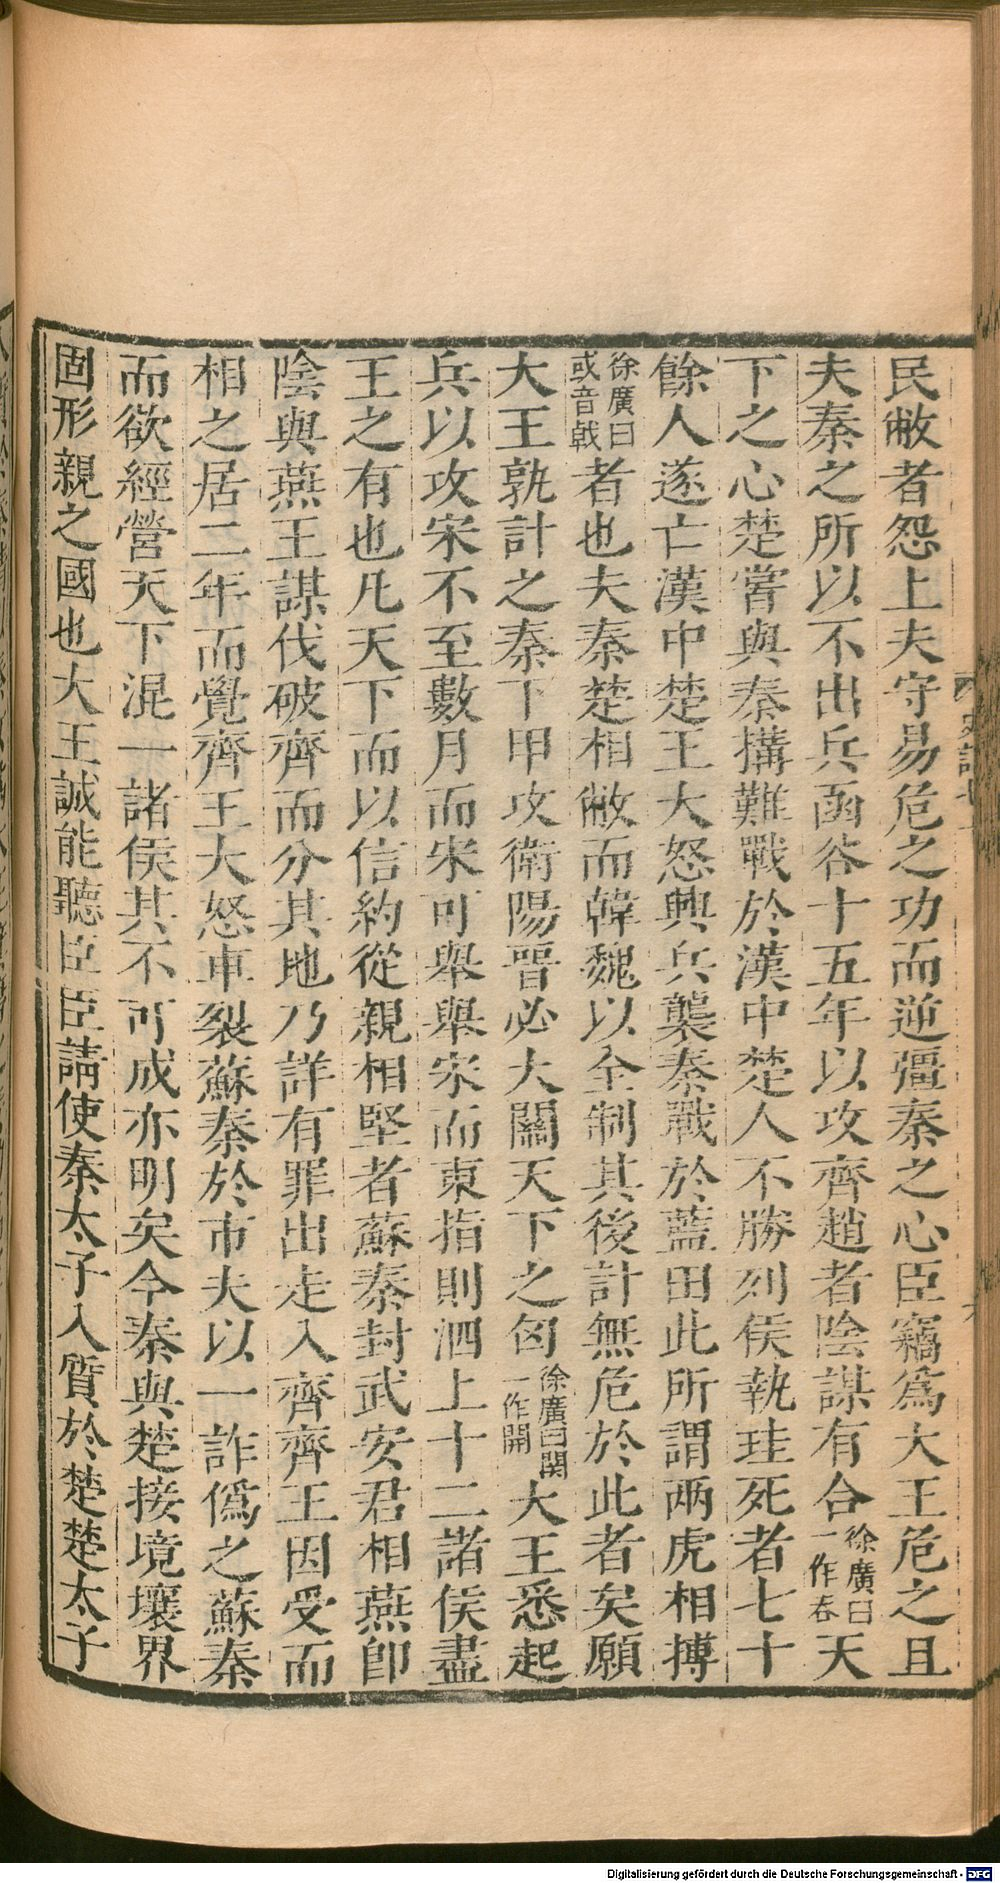 民敝者怨上夫守易危之功而逆彊秦之心臣竊爲大王危之且
夫秦之所以不出兵函谷十五年以攻齊趙者陰謀有合徐廣曰一作吞天
下之心楚嘗與秦搆難戰於漢中楚人不勝列侯執珪死者七十
餘人遂亡漢中楚王大怒興兵襲秦戰於藍田此所謂兩虎相搏
徐廣曰或音戟者也夫秦楚相敝而韓魏以全制其後計無危於此者矣願
大王孰計之秦下甲攻衛陽晉必大關天下之匈徐廣曰関一作開大王悉起
兵以攻宋不至數月而宋可舉舉宋而東指則泗上十二諸侯盡
王之有也凡天下而以信約從親相堅者蘇秦封武安君相燕卽
陰與燕王謀伐破齊而分其地乃詳有罪出走入齊齊王因受而
相之居二年而覺齊王大怒車裂蘇秦於市夫以一詐僞之蘇秦
而欲經營天下混一諸侯其不可成亦明矣今秦與楚接境壤界
固形親之國也大王誠能聽臣臣請使秦太子入質於楚楚太子
Digitalisierung gefördert durch die Deutsche Forschungsgemeinschaft - DFG